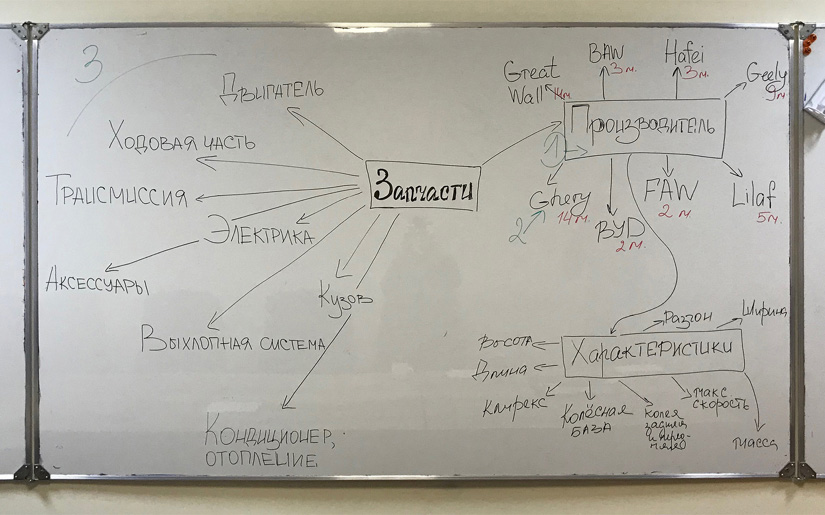 3
Двигатель
Ходовая часть
Трансмиссия
Электрика
Аксессуары
Выхлопная система
Кузов
Кондиционер,
отопление
Запчасти
1
Производитель
Great
Wall 14м.
BAW
3м.
Hafei
3м.
Geely
9м.
Ghery
14м.
2
BYD
2м.
FAW
2м
Lilaf
5м.
Характеристики
Разгон
Ширина
Высота
Длина
Клиренс
Колёсная
база
колея
задняя
и перед-
макс
скорость
масса